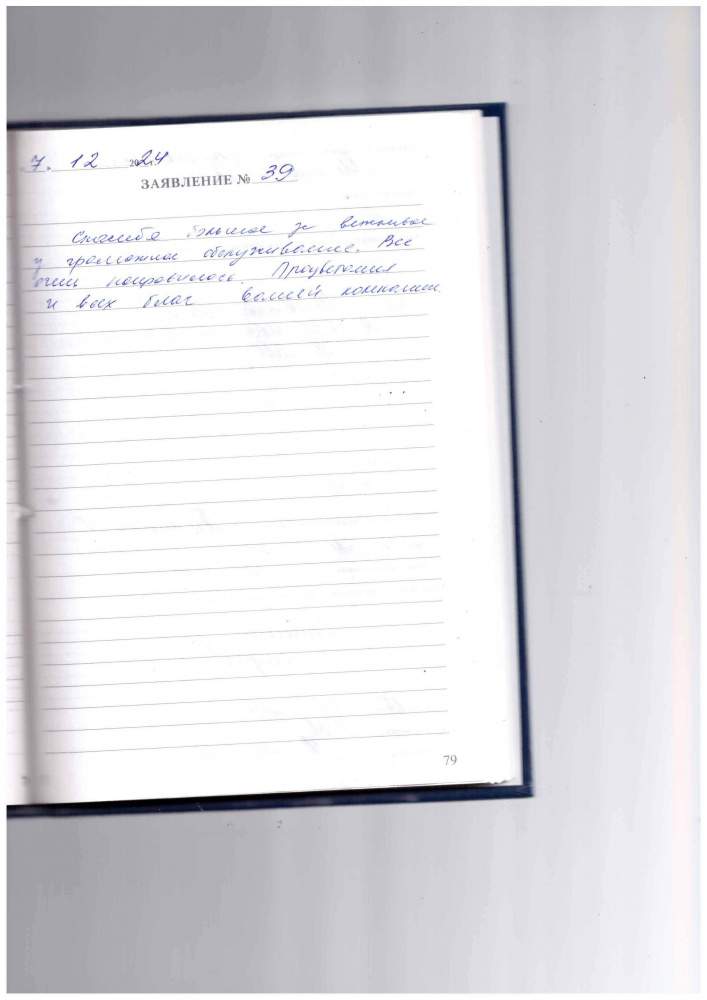 7. 12 2024 г.
ЗАЯВЛЕНИЕ № 39
Спасибо большое за вежливое
и грамотное обслуживание. Все
очень понравилось. Процветания
и всех благ вашей компании.
79